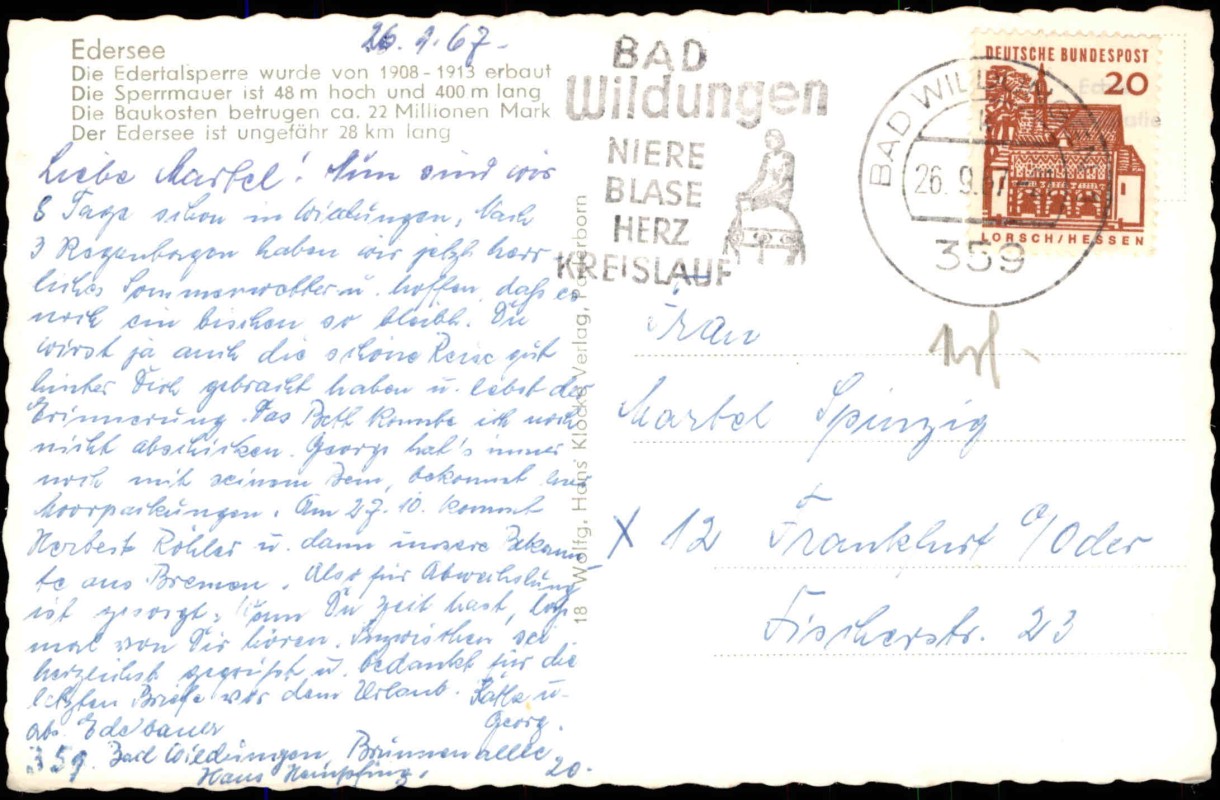 26.9.67-
Edersee
Die Edertalsperre wurde von 1908-1913 erbaut
Die Sperrmauer ist 48 m hoch und 400 m lang
Die Baukosten betrugen ca. 22 Millionen Mark
Der Edersee ist ungefähr 28 km lang
Liebe Martel! Nun sind wir
8 Tage schon in Wildungen, Nach
3 Regentagen haben wir jetzt herr
liches Sommerwetter u. hoffen, daß es
noch ein bischen so bleibt. Du
wirst ja auch die schöne Reise gut
hinter Dich gebracht haben u. lebst der
Erinnerung. Das Bett konnte ich noch
nicht abschicken. Georg hat's immer
noch mit seinem Bein, bekommt hier
Moorpackungen. Am 27.10. kommt
Herbert Köhler u. dann unsere Bekann
te aus Bremen. Also für Abwechslung
ist gesorgt. Wenn Du Zeit hast, laß
mal von Dir hören. Inzwischen sei
herzlichst gegrüßt u. bedankt für die
letzten Briefe vor dem Urlaub. Käthe u.
Georg.
abs. Edebauer
359. Bad Wildungen, Brunnenallee
Haus 20.
18 Wolfg. Hans Klocke Verlag, Paderborn
BAD
Wildungen
NIERE
BLASE
HERZ
KREISLAUF
BAD WILDUNGEN
26.9.67
359
DEUTSCHE BUNDESPOST
20
LORSCH/HESSEN
Frau
Martel Spinzig
X 12 Frankfurt a/Oder
Fischerstr. 23